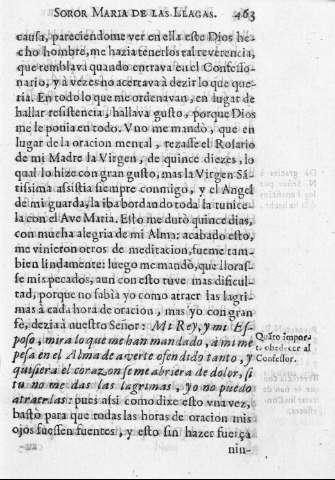 SOROR MARIA DE LAS LLAGAS. 463
causa, pareciendome ver en ella este Dios he-
cho hombre, me hazia tenerlos tal reverencia,
que temblava quando entrava en el Confesso-
nario, y à vezes no acertava à dezir lo que que-
ria. En todo lo que me ordenavan, en lugar de
hallar resistencia, hallava gusto, porque Dios
me le ponia en todo. Vno me mandò, que en
lugar de la oracion mental, rezasse el Rosario
de mi Madre la Virgen, de quince diezes, lo
qual lo hize con gran gusto, mas la Virgen Sã-
tissima assistia siempre conmigo, y el Angel
de mi guarda, la iba bordando toda la tunice-
la con el Ave Maria. Esto me durò quince dias,
con mucha alegria de mi Alma: acabado esto,
me vinieron otros de meditacion, fueme tam-
bien lindamente: luego me mandò, que lloras-
se mis pecados, aun con esto tuve mas dificul-
tad, porque no sabìa yo como atraer las lagri-
mas à cada hora de oracion, mas yo con gran
fè, dezia à nuestro Señor: Mi Rey, y mi Es-
poso, mira lo que me han mandado, à mi me
pesa en el Alma de averte ofendido tanto, y
quisiera el corazon se me abriera de dolor, si
tu no me das las lagrimas, yo no puedo
atraerlas: pues assi como dixe esto vna vez,
bastò para que todas las horas de oracion mis
ojos fuessen fuentes, y esto sin hazer fuerça
nin-
Quãto impor-
ta obedecer al
Confessor.